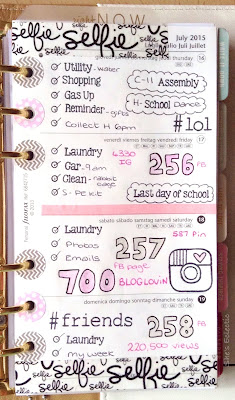 NOW
selfie selfie selfie
July 2015
thursday 16
Utility - water
Shopping
Gas Up
Reminder - gifts
Collect H 6pm
C-11 Assembly
H-School Dance
#lol
venerdi viernes freitag vendredi friday 17
Laundry
Car - 9am
Clean - rabbit cage
S - PE Kit
6330 IG
256 FB
Last day of school
sabato sábado samstag samedi saturday 18
Laundry
Photos
Emails
587 Pin
257
FB page
700 BLOGLOVIN
domenica domingo sonntag dimanche sunday 19
#friends
Laundry
my week
258 FB
220,500 views
selfie selfie selfie